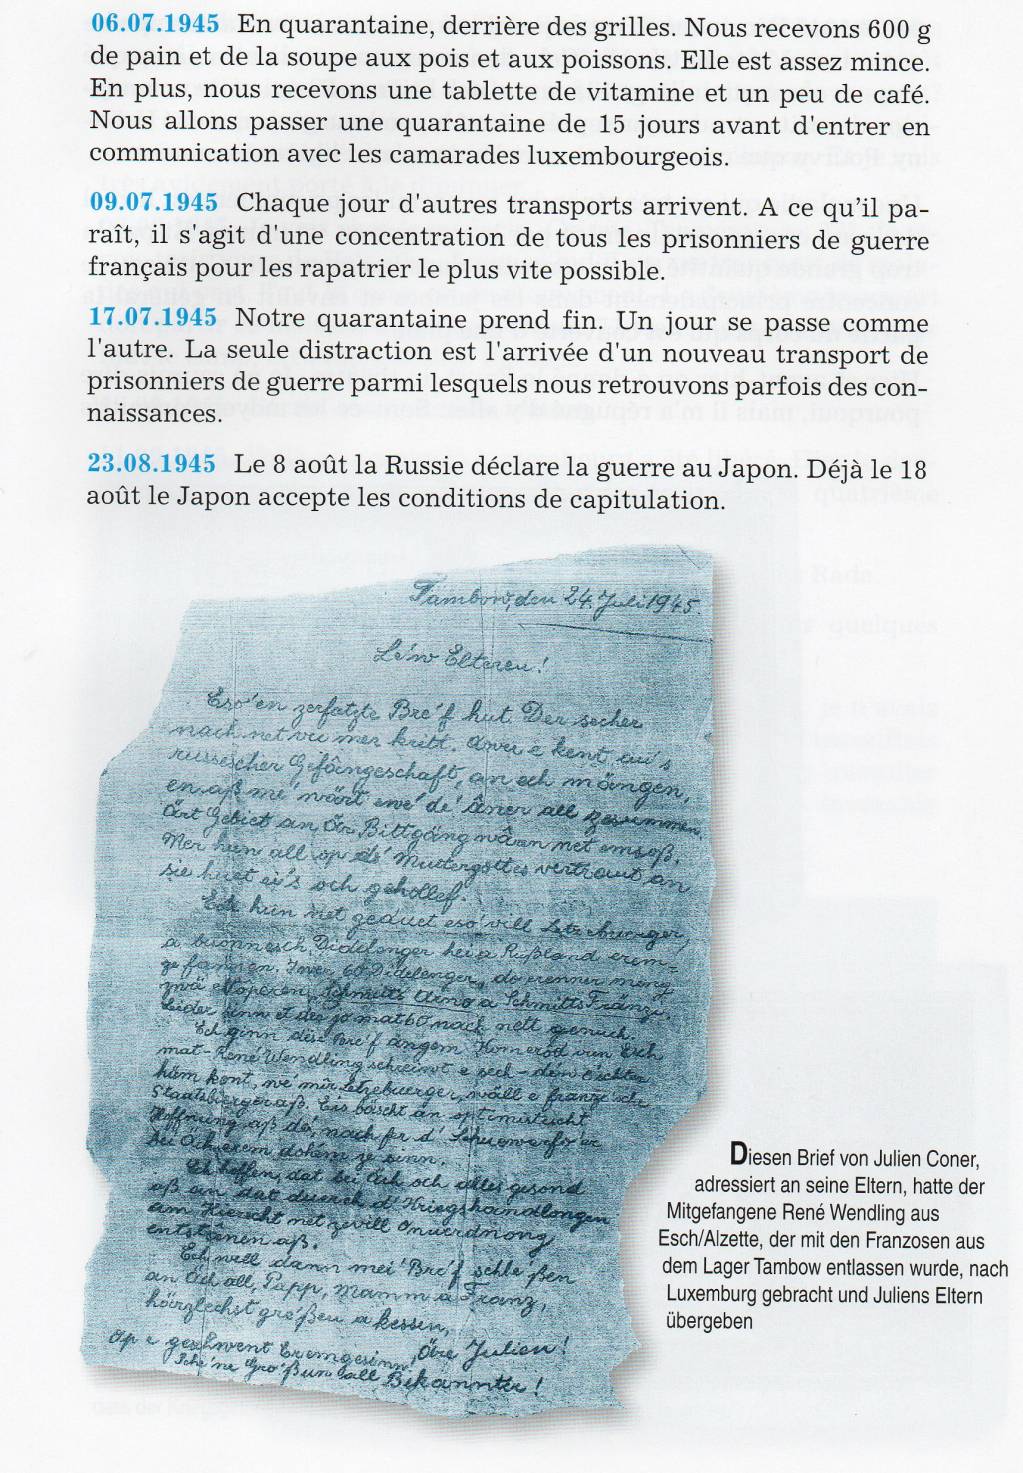 06.07.1945 En quarantaine, derrière des grilles. Nous recevons 600 g
de pain et de la soupe aux pois et aux poissons. Elle est assez mince.
En plus, nous recevons une tablette de vitamine et un peu de café.
Nous allons passer une quarantaine de 15 jours avant d'entrer en
communication avec les camarades luxembourgeois.
09.07.1945 Chaque jour d'autres transports arrivent. A ce qu’il pa-
raît, il s'agit d'une concentration de tous les prisonniers de guerre
français pour les rapatrier le plus vite possible.
17.07.1945 Notre quarantaine prend fin. Un jour se passe comme
l'autre. La seule distraction est l'arrivée d'un nouveau transport de
prisonniers de guerre parmi lesquels nous retrouvons parfois des con-
naissances.
23.08.1945 Le 8 août la Russie déclare la guerre au Japon. Déjà le 18
août le Japon accepte les conditions de capitulation.
Tambow, den 24. Juli 1945
Le'w Elteren!
Eso' en zerfatzte Bre'f hut Der secher
nach net vu mer kritt. Awer e kent au's
russescher Gefängeschaft, an ech mängen,
en aß me' wärt ewe' de' aner all zesummen.
Är Gebiet an Är Bittgäng wären net emsoß.
Mer hun all op de' Muttergottes vertraut an
sie huet ei's och gehollef.
Ech hun net geduet eso' vill Letzebuerger,
a Didelenger hei a Rußland erem-
ze fannen. Iwer 60 Didelenger, do erenner
zwä Schmitts Arno a Schmitts Fränz.
Leider sinn et der jo mat 60 nach nett genuch.
Ech ginn dese Bre'f engem Komerod vun Esch
mat - René Wendling schreiwt e sech - de'w e'schter
hem kent, we' mir Letzebuerger, well e franze'sche
Staatsbierger aß. Eis bescht an optimistescht
Hoffnung aß de', nach fir d' Schuewerfo'er
bei Ach erem dohem ze sinn.
Ech hoffen, dat bei Ach och alles gesond
aß an dat duerch d' Kriegshandlongen
am Hierscht net ze vill Onuerdnong
entstanen aß.
Ech well dann mei' Bre'f schle'ßen
an Ach all, Papp, Mamm a Franz,
härzlechst gre'ßen a kessen,
Op e geschwent Eremgesinn, Öre Julien!
Sche'ne Gro'ß un all Bekannter!
Diesen Brief von Julien Coner,
adressiert an seine Eltern, hatte der
Mitgefangene René Wendling aus
Esch/Alzette, der mit den Franzosen aus
dem Lager Tambow entlassen wurde, nach
Luxemburg gebracht und Juliens Eltern
übergeben